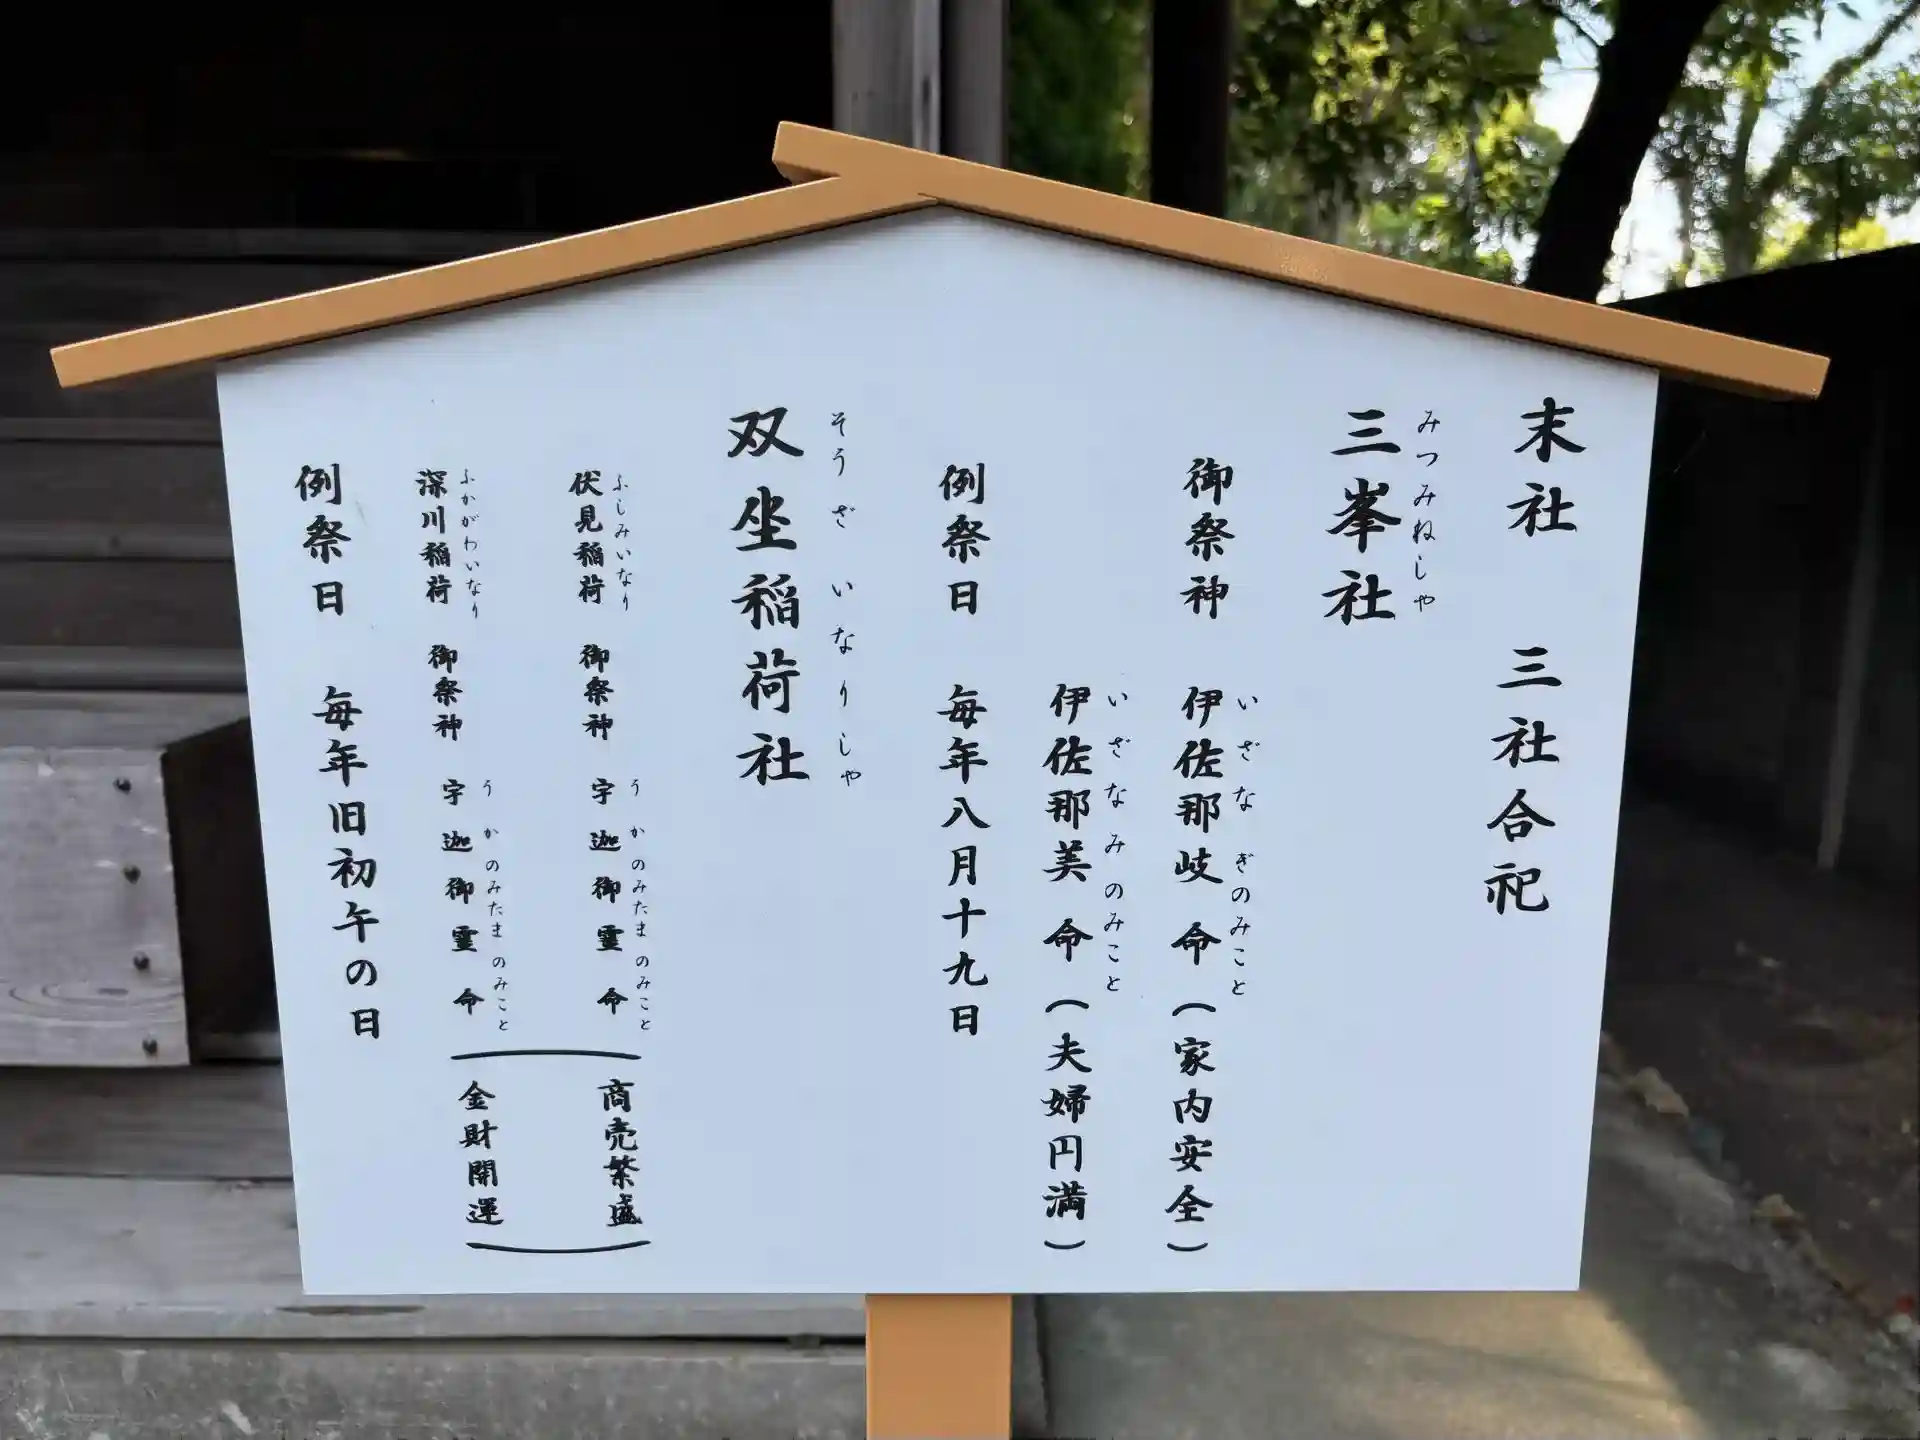 末社　三社合祀
みつみねしや
三峯社
いざなぎのみこと
御祭神　伊佐那岐命（家内安全）
いざなみのみこと
伊佐那美命（夫婦円満）
例祭日　毎年八月十九日
そうざいなりしや
双坐稲荷社
ふしみいなり　うかのみたまのみこと
伏見稲荷　御祭神　宇迦御霊命（商売繁盛
ふかがわいなり　うかのみたまのみこと
深川稲荷　御祭神　宇迦御霊命　金財開運）
例祭日　毎年旧初午の日